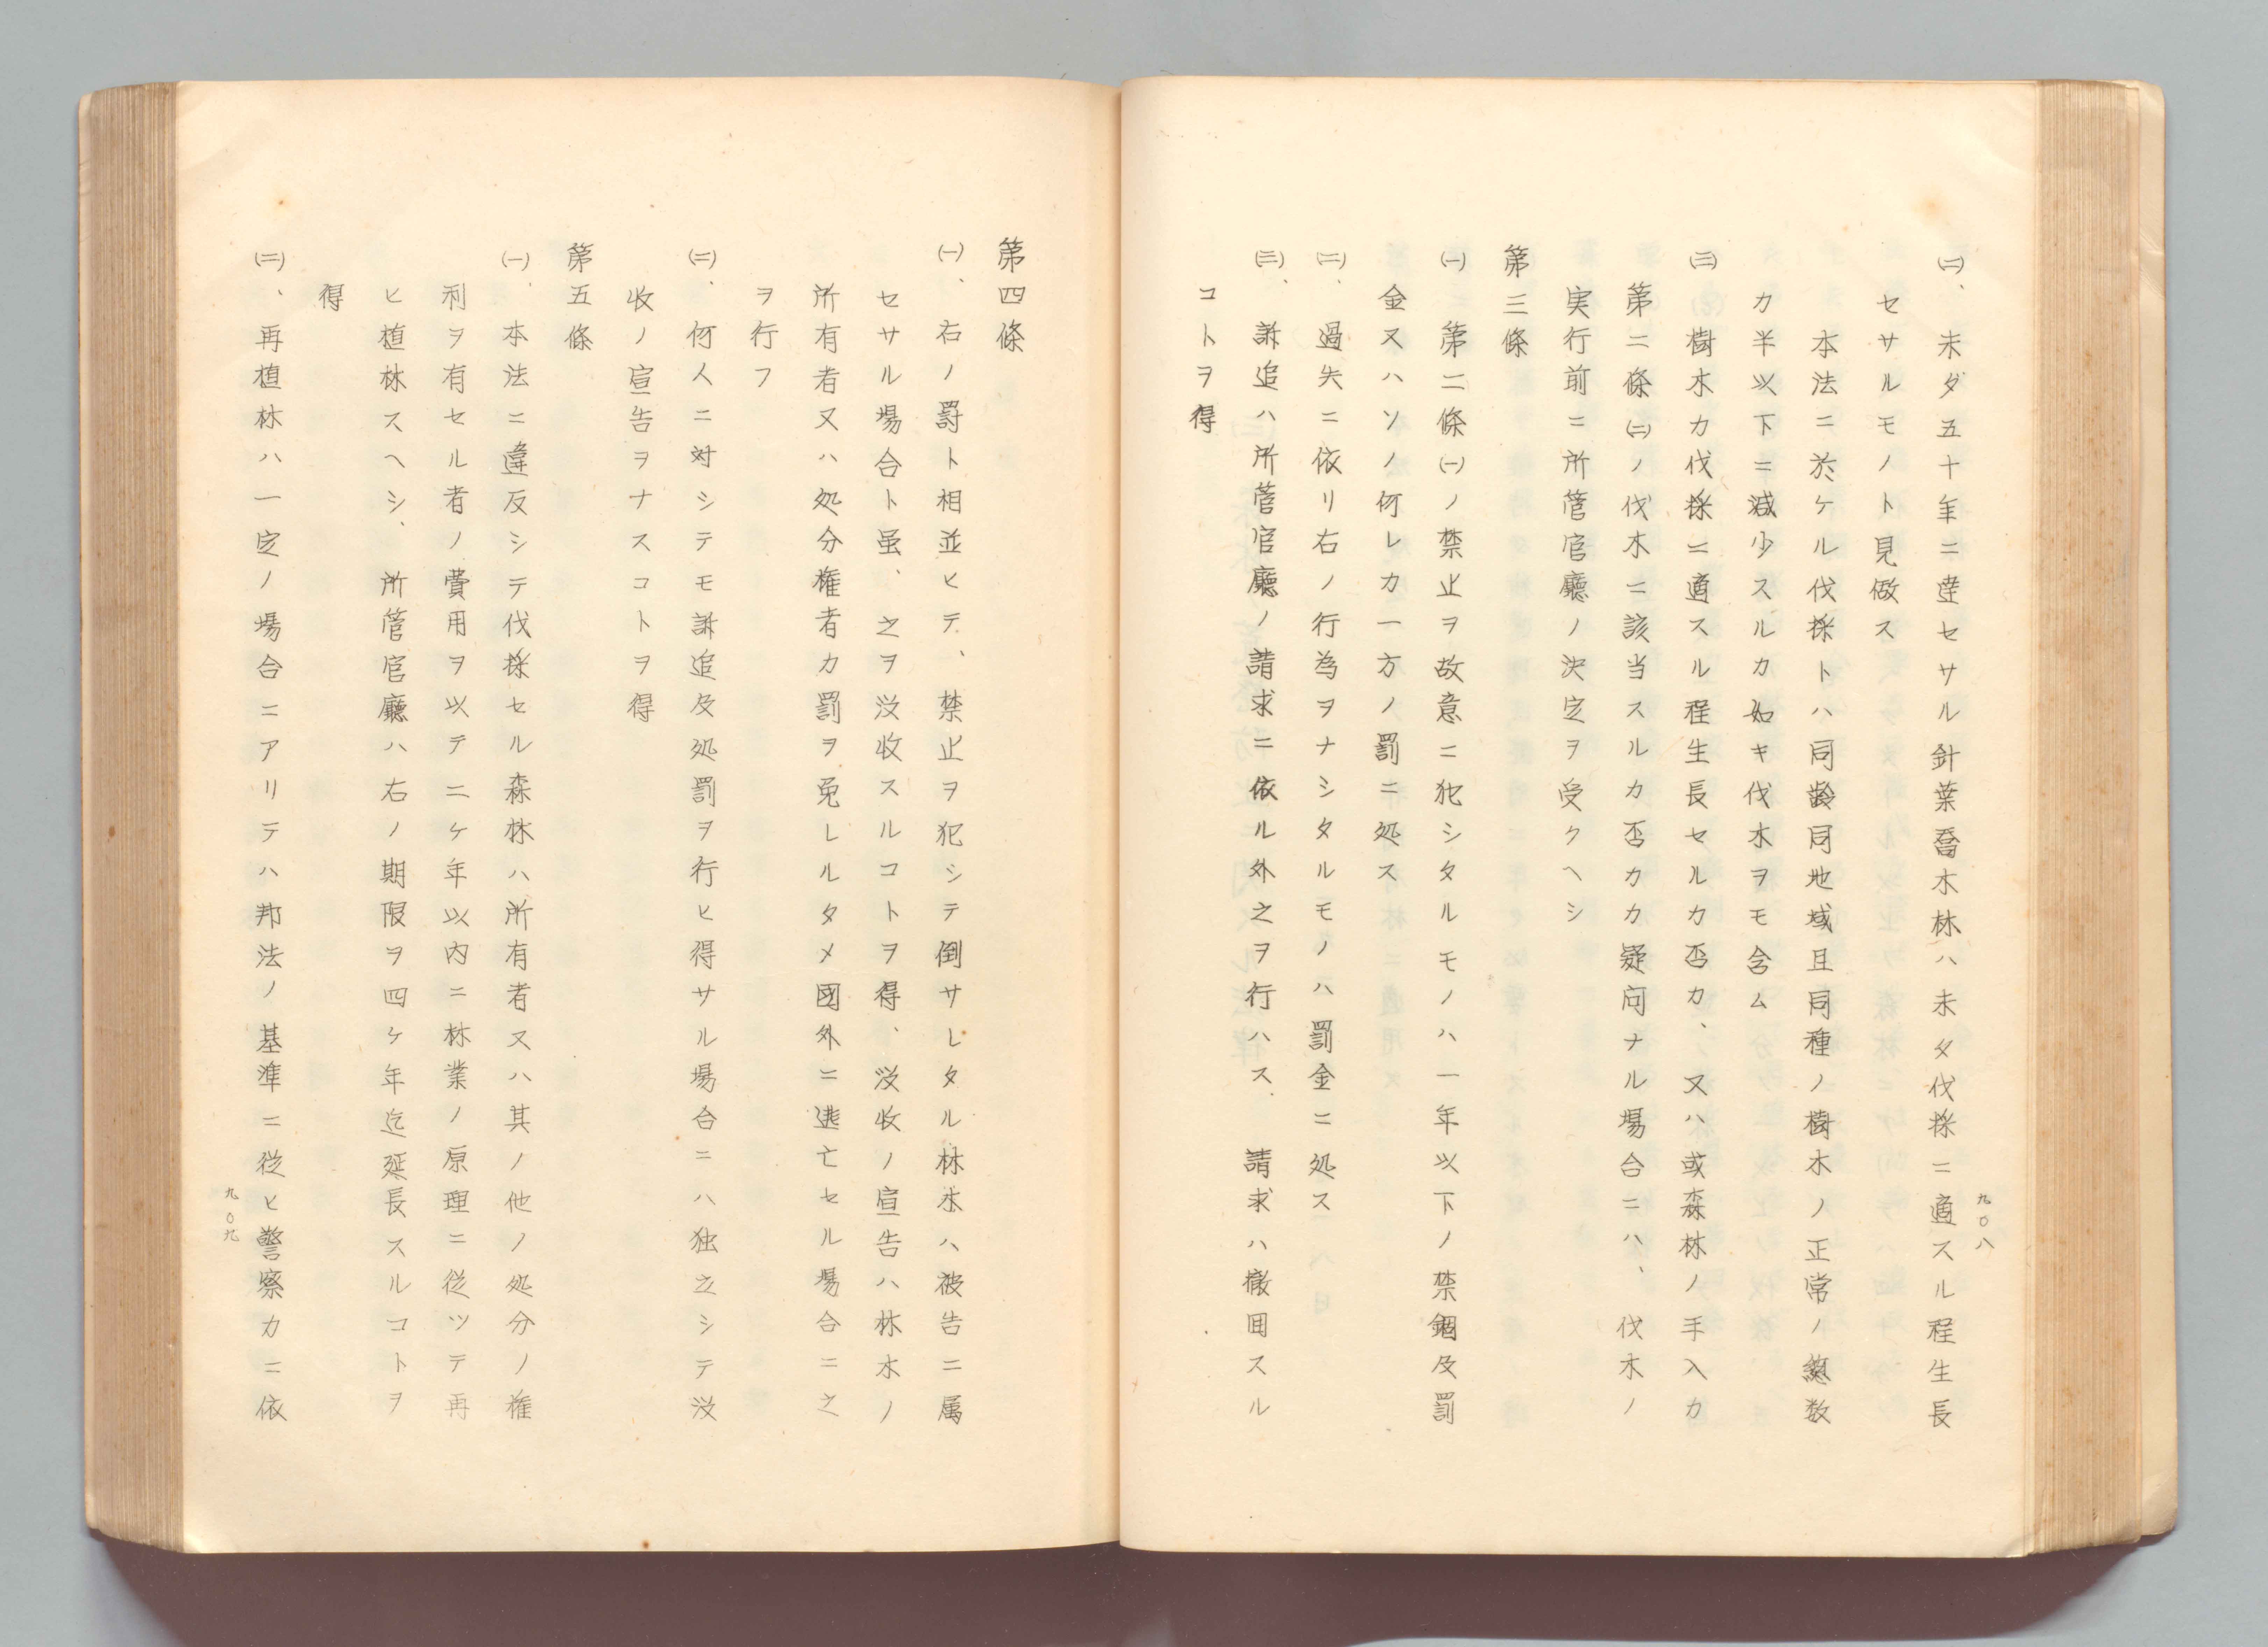 九〇八
㈡、未ダ五十年ニ達セサル針葉喬木林ハ未タ伐採ニ適スル程生長
セサルモノト見做ス
本法ニ於ケル伐採トハ同齢同地域且同種ノ樹木ノ正常ノ総数
カ半以下ニ減少スルカ如キ伐木ヲモ含ム
㈢樹木カ伐採ニ適スル程生長セルカ否カ、又ハ或森林ノ手入カ
第二條㈡ノ伐木ニ該当スルカ否カカ疑問ナル場合ニハ、伐木ノ
実行前ニ所管官廳ノ決定ヲ受クヘシ
第三條
㈠第二條㈠ノ禁止ヲ故意ニ犯シタルモノハ一年以下ノ禁錮及罰
金又ハソノ何レカ一方ノ罰ニ処ス
㈡、過失ニ依リ右ノ行為ヲナシタルモノハ罰金ニ処ス
㈢、訴追ハ所管官廳ノ請求ニ依ル外之ヲ行ハス、請求ハ撤囬スル
コトヲ得
第四條
㈠、右ノ罰ト相並ヒテ、禁止ヲ犯シテ倒サレタル林木ハ被告ニ属
セサル場合ト虽、之ヲ没收スルコトヲ得、没收ノ宣告ハ林木ノ
所有者又ハ処分権者カ罰ヲ免レルタメ國外ニ逃亡セル場合ニ之
ヲ行フ
㈡、何人ニ対シテモ訴追及処罰ヲ行ヒ得サル場合ニハ独立シテ没
收ノ宣告ヲナスコトヲ得
第五條
㈠、本法ニ違反シテ伐採セル森林ハ所有者又ハ其ノ他ノ処分ノ権
利ヲ有セル者ノ費用ヲ以テニケ年以内ニ林業ノ原理ニ従ツテ再
ヒ植林スヘシ、所管官廳ハ右ノ期限ヲ四ケ年迄延長スルコトヲ
得
㈡、再植林ハ一定ノ場合ニアリテハ邦法ノ基準ニ従ヒ警察カニ依
九〇九